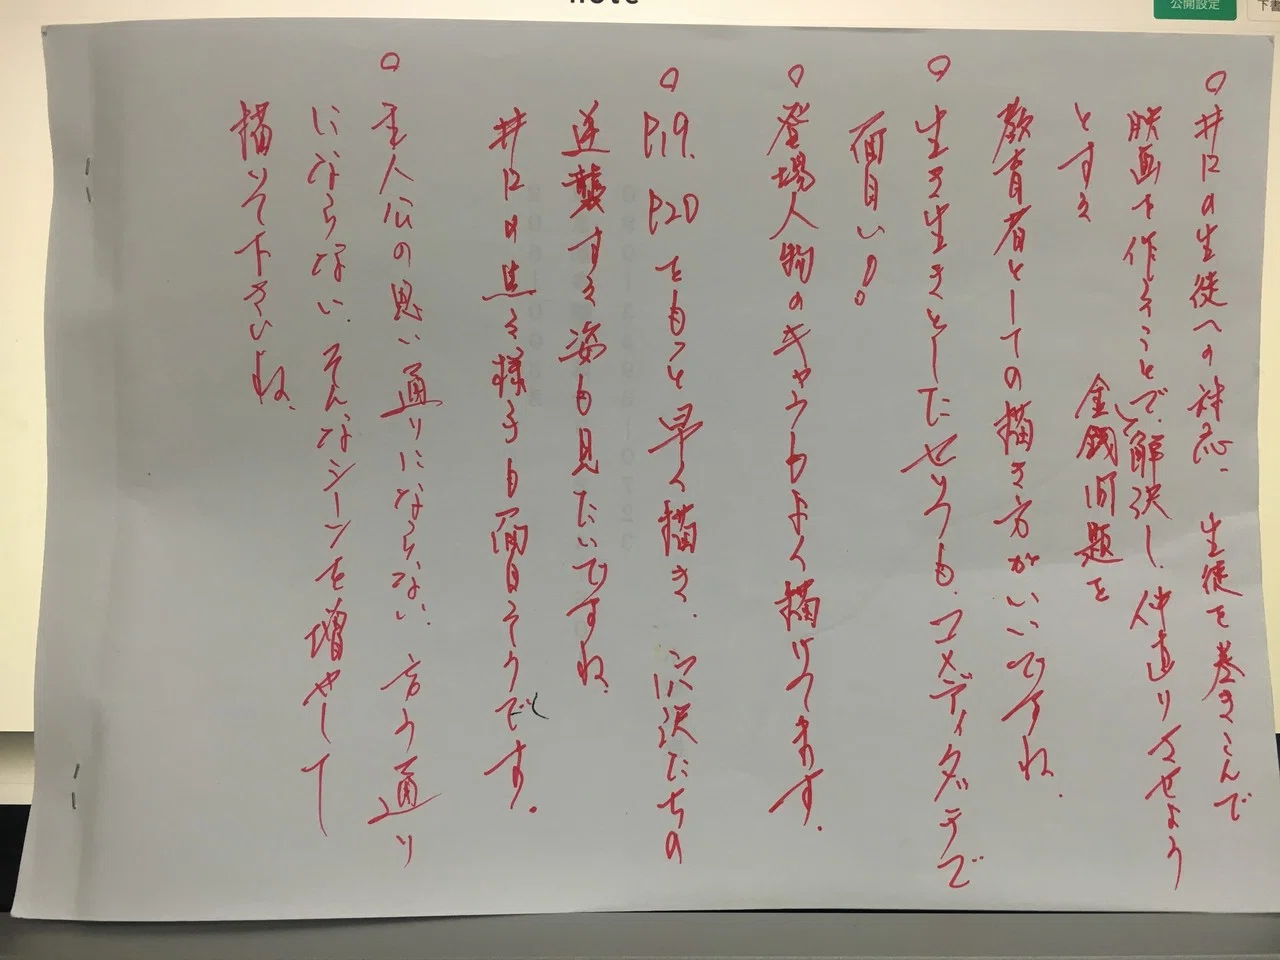 note
公開設定
下書
○井口の生徒への対応、生徒を巻きこんで
映画を作ろうことで、解決し、仲直りさせよう
金銭問題を
とする
教育者としての描き方がいいですね.
○生き生きとしたせりふも、コメディタッチで
面白い!!
○登場人物のキャラもよく描けてます.
○P19. P20をもっと早く描き、穴沢たちの
逆襲する姿も見たいですね.
井口の焦る様子も面白そうです.
○主人公の思い通りにならない、言う通り
にならない、そんなシーンを増やして
描いて下さいね.